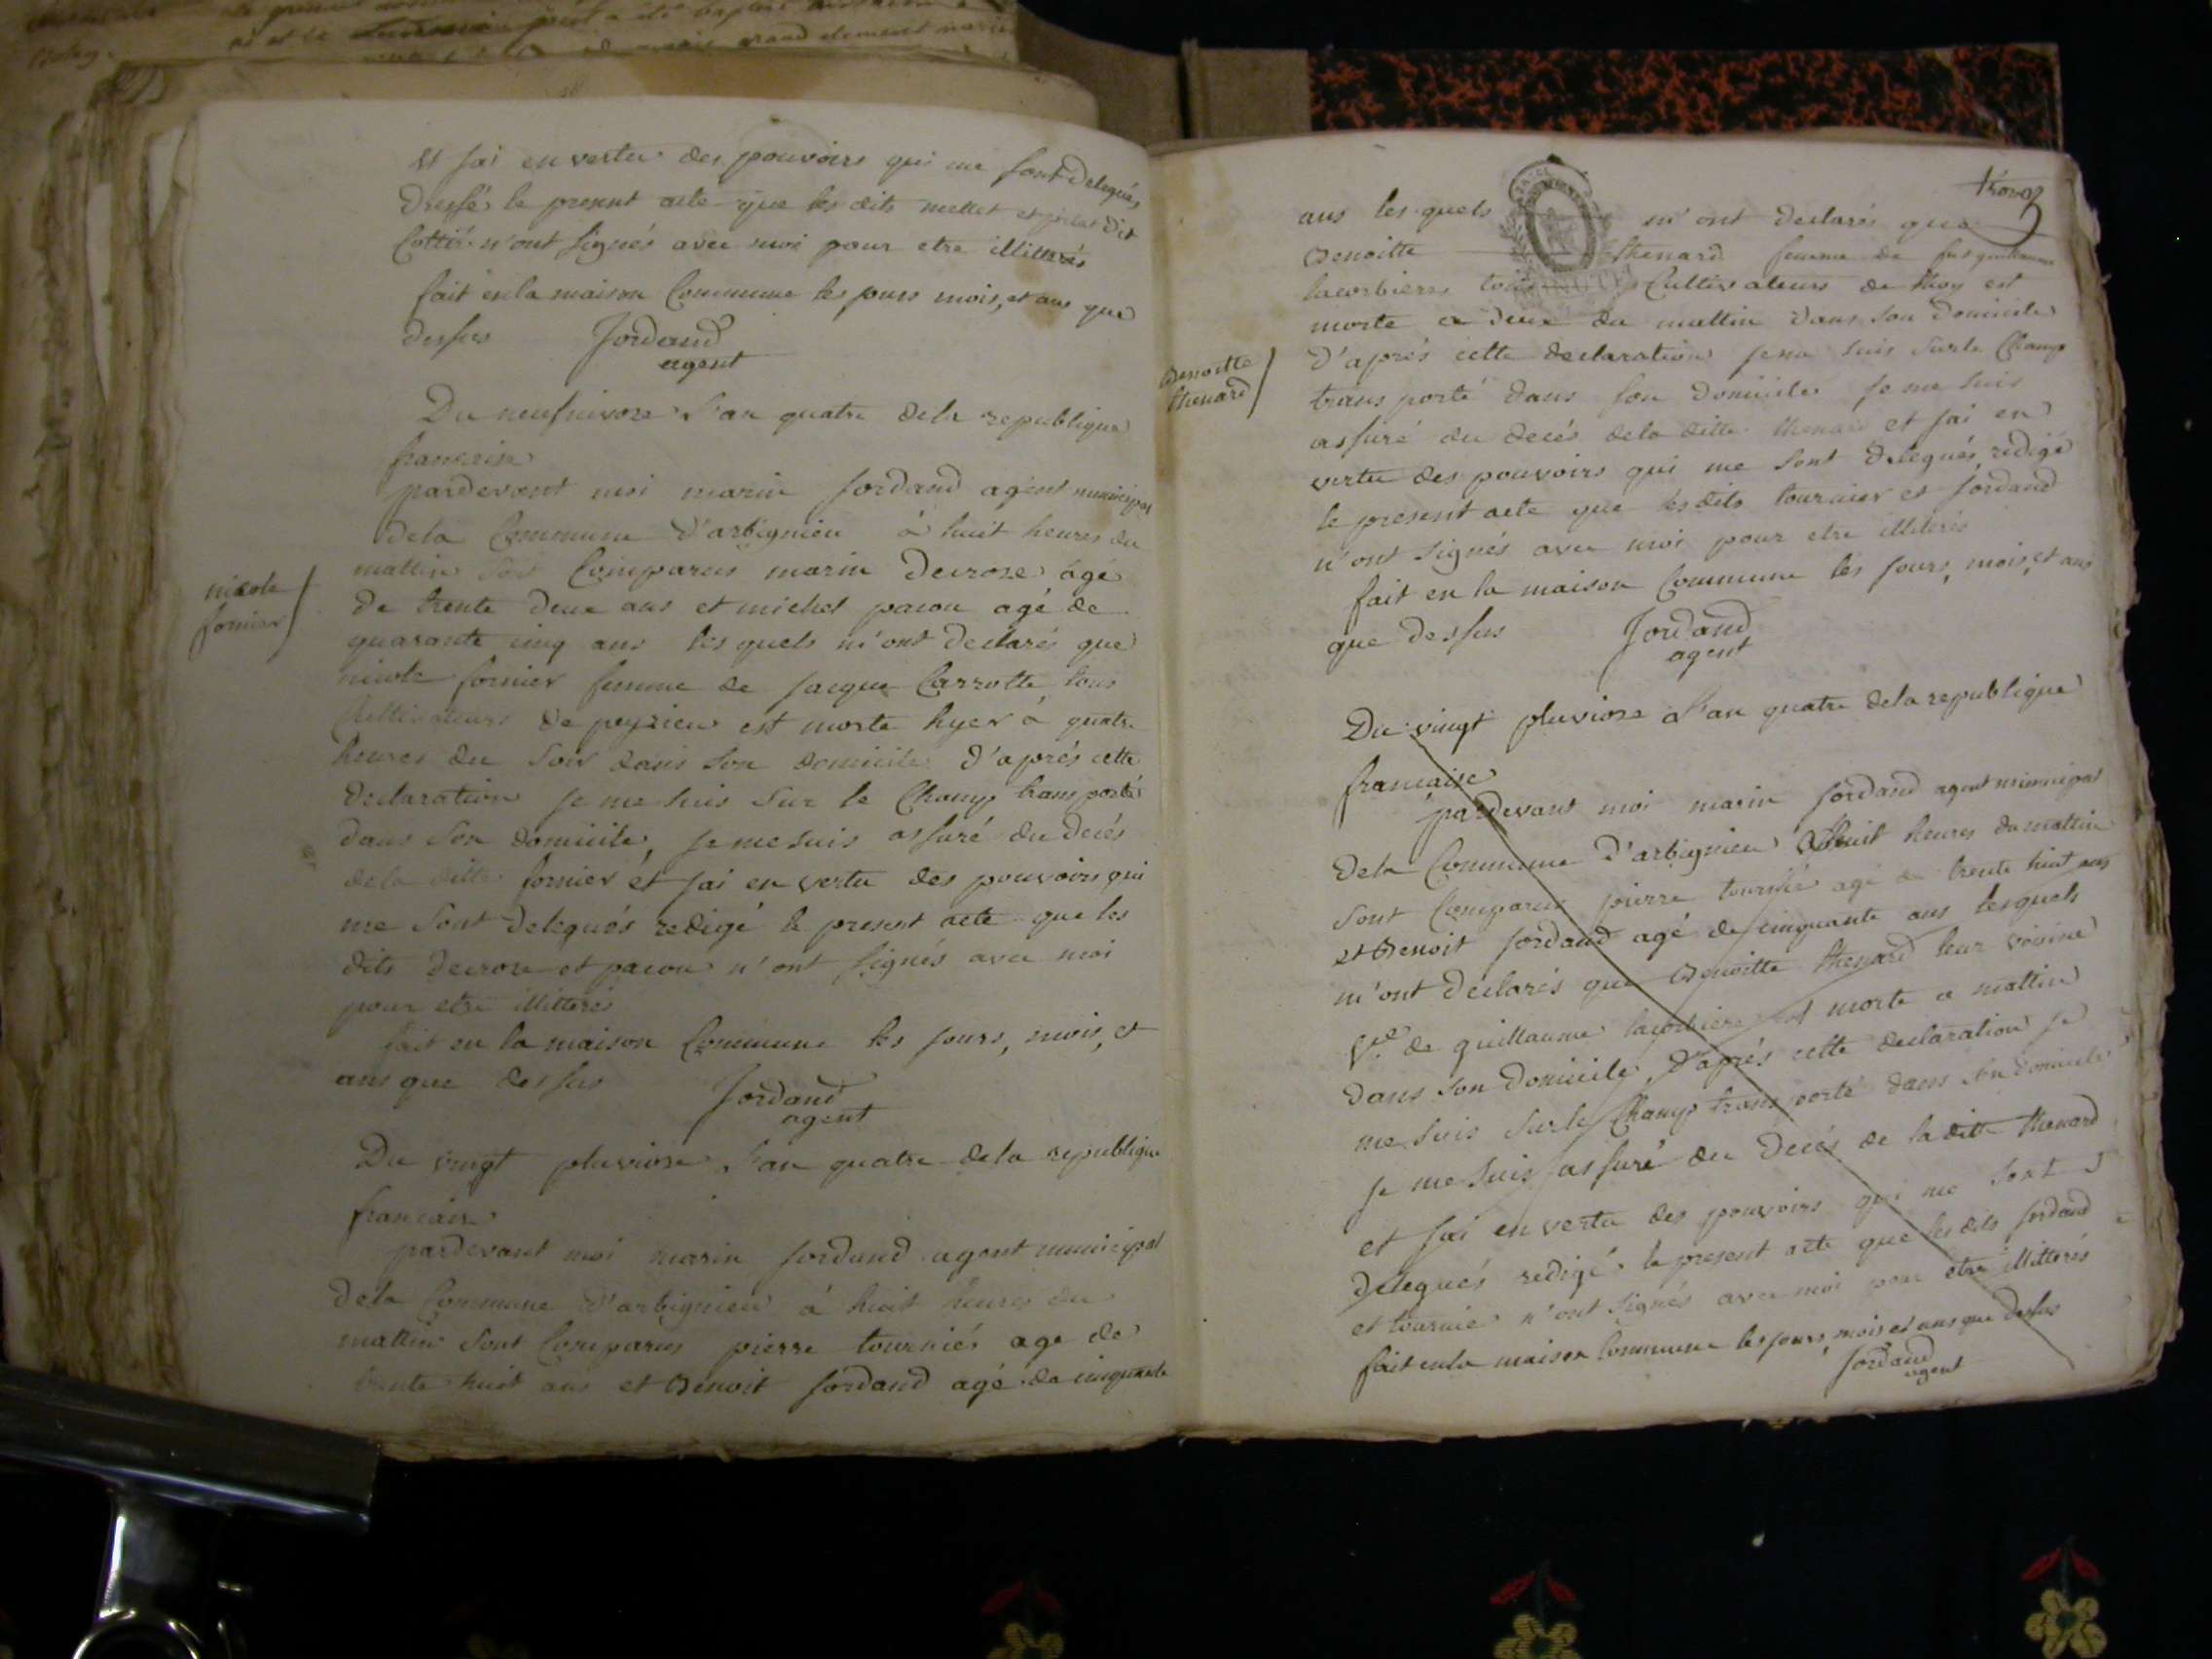 et jai en vertu des pouvoirs qui me sont delegués
dressé le present acte que les dits mellet et
Cottié n'ont signés avec moi pour etre illitterés
fait en la maison Commune les jours mois, et ans que
dessus Jordand
agent
Du neuf nivose l'an quatre dela republique
francaise
pardevant moi marin jordand agent municipal
dela Commune d'arbignieu à huit heures du
mattin son Comparus marin Decroze agé
de trente deux ans et michel pacou agé de
quarante cinq ans lesquels m'ont declarés que
nicole fornier femme de jacque Carrotte tous
Cultivateurs de peyzieu est morte hyer à quatre
heures du soir dans son domicile d'aprés cette
declaration je me suis sur le Champ transporté
dans son domicile, je me suis assuré du decés
dela ditte fornier et jai en vertu des pouvoirs qui
me sont delegués redigé le present acte que les
dits decroze et pacou n'ont signés avec moi
pour etre illitterés
fait en la maison Commune les jours, mois, et
ans que dessus Jordand
agent
nicole
fornier
Du vingt pluviose l'an quatre dela republique
francaise
pardevant moi marin jordand agent municipal
dela Commune d'arbignieu à huit heures du
mattin sont Comparus pierre tourniés age de
trente huit ans et Benoit jordand agé de cinquante
ans les quels m'ont declarés que
Benoitte thenard femme de fut guillaume
lacorbiere tous Cultivateurs de thoy est
morte a deux du mattin dans son domicile
d'aprés cette declaration je me suis sur le Champ
transporté dans son domicile je me suis
assuré du decés dela ditte thenard et jai en
vertu des pouvoirs qui me sont delegués redigé
le present acte que les dits tournier et jordand
n'ont signés avec moi pour etre illiterés
fait en la maison Commune les jours, mois, et ans
que dessus Jordand
agent
Benoitte
thenard
Du vingt pluviose l'an quatre dela republique
francaise
pardevant moi marin jordand agent municipal
dela Commune d'arbignieu à huit heures du mattin
sont Comparus pierre tournié age de trente huit ans
et Benoit jordand agé de cinquante ans lesquels
m'ont declarés que Benoitte thenard leur voisine
Vve de guillaume lacorbiere est morte a mattin
dans son domicile, d'aprés cette declaration je
me suis sur le Champ transporté dans son domicile
je me suis assuré du decés de la ditte thenard
et jai en vertu des pouvoirs qui me sont
delegués redigé le present acte que les dits jordand
et tournié n'ont signés avec moi pour etre illitterés
fait en la maison Commune les jours, mois et ans que dessus
Jordand
agent